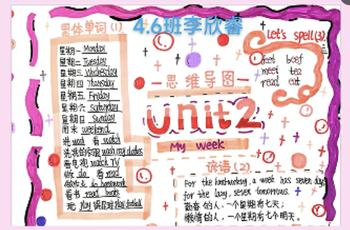 4.6班李欣馨
黑体单词(1)
星期一 Monday
星期二 Tuesday
星期三 Wednesday
星期四 Thursday
星期五 Friday
星期六 Saturday
星期日 Sunday
周末 weekend
看 watch
看电视 watch TV
做 do 看 read
做作业 do homework
看书 read books
玩 play 踢足球 play football
Let's spell(3)
feet beef
meet tea
eat read
思维导图
Unit2
My week
谚语(2)
For the hardworking, a week has seven days
for the lazy, seven tomorrows.
勤奋的人,一个星期有七天;
懒惰的人,一个星期有七个明天。